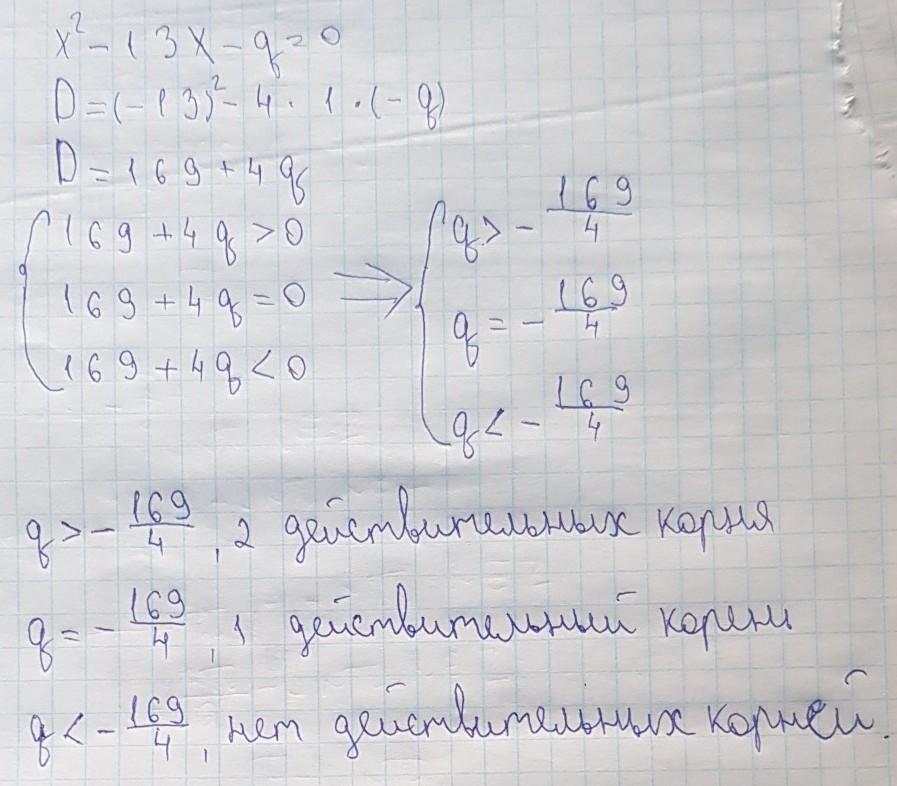 x² - 13x - q = 0
D = (-13)² - 4 · 1 · (-q)
D = 169 + 4q
{ 169 + 4q > 0
169 + 4q = 0
169 + 4q < 0
⇒
{ q > - 169/4
q = - 169/4
q < - 169/4
q > - 169/4, 2 действительных корня
q = - 169/4, 1 действительный корень
q < - 169/4, нет действительных корней.